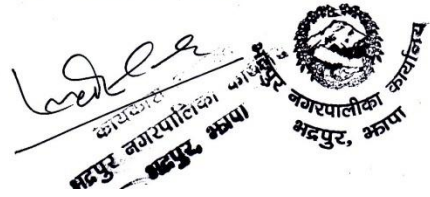 कार्यकारी
भद्रपुर नगरपालिका
भद्रपुर, झापा
भद्रपुर नगरपालीका कार्यालय
भद्रपुर, झापा